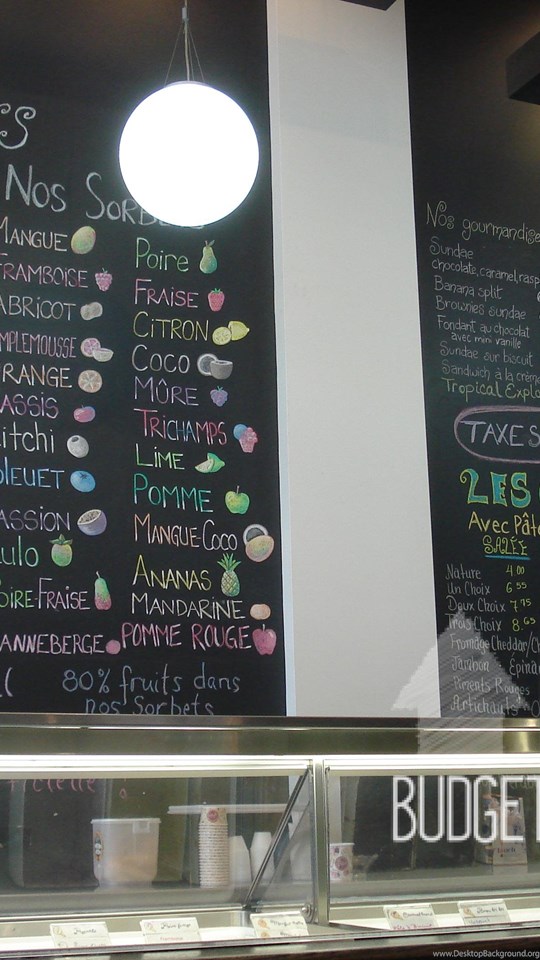 ES
Nos Sorbets
MANGUE
FRAMBOISE
ABRICOT
MPLEMOUSSE
RANGE
ASSIS
Litchi
BLEUET
ASSION
ulo
OIRE-FRAISE
ANNEBERGE
Poire
FRAISE
CITRON
COCO
MÛRE
TRICHAMPS
LIME
POMME
MANGUE-COCO
ANANAS
MANDARINE
POMME ROUGE
80% fruits dans
nos Sorbets
Nos gourmandise
Sundae
chocolate, caramel, rasp
Banana split
Brownies sundae
Fondant au chocolat
avec mini vanille
Sundae sur biscuit
Sandwich à la crème
Tropical Explo
TAXES
LES
Avec Pât
SALÉE
Nature 4.00
Un Choix 6.55
Deux Choix 7.75
Trois Choix 8.65
Fromage Cheddar/Ch
Jambon Epinar
Piments Rouges
Artichauts
BUDGET
www.DesktopBackground.org